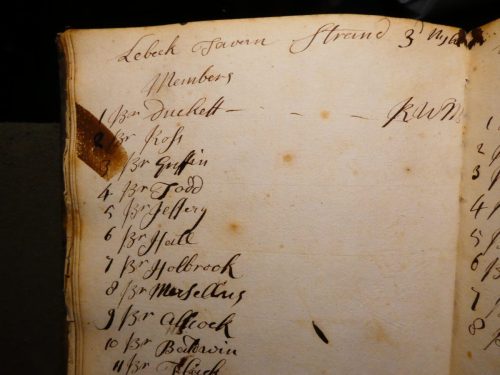 Lebeck Tavern Strand 3d
Members
1 Br Duckett - - - - RWM
2 Br Ross
3 Br Griffin
4 Br Todd
5 Br Jeffery
6 Br Hall
7 Br Holbrook
8 Br Marsellus
9 Br Allcock
10 Br Baldwin
11 Br
1
2
3
4
5
6
7
8